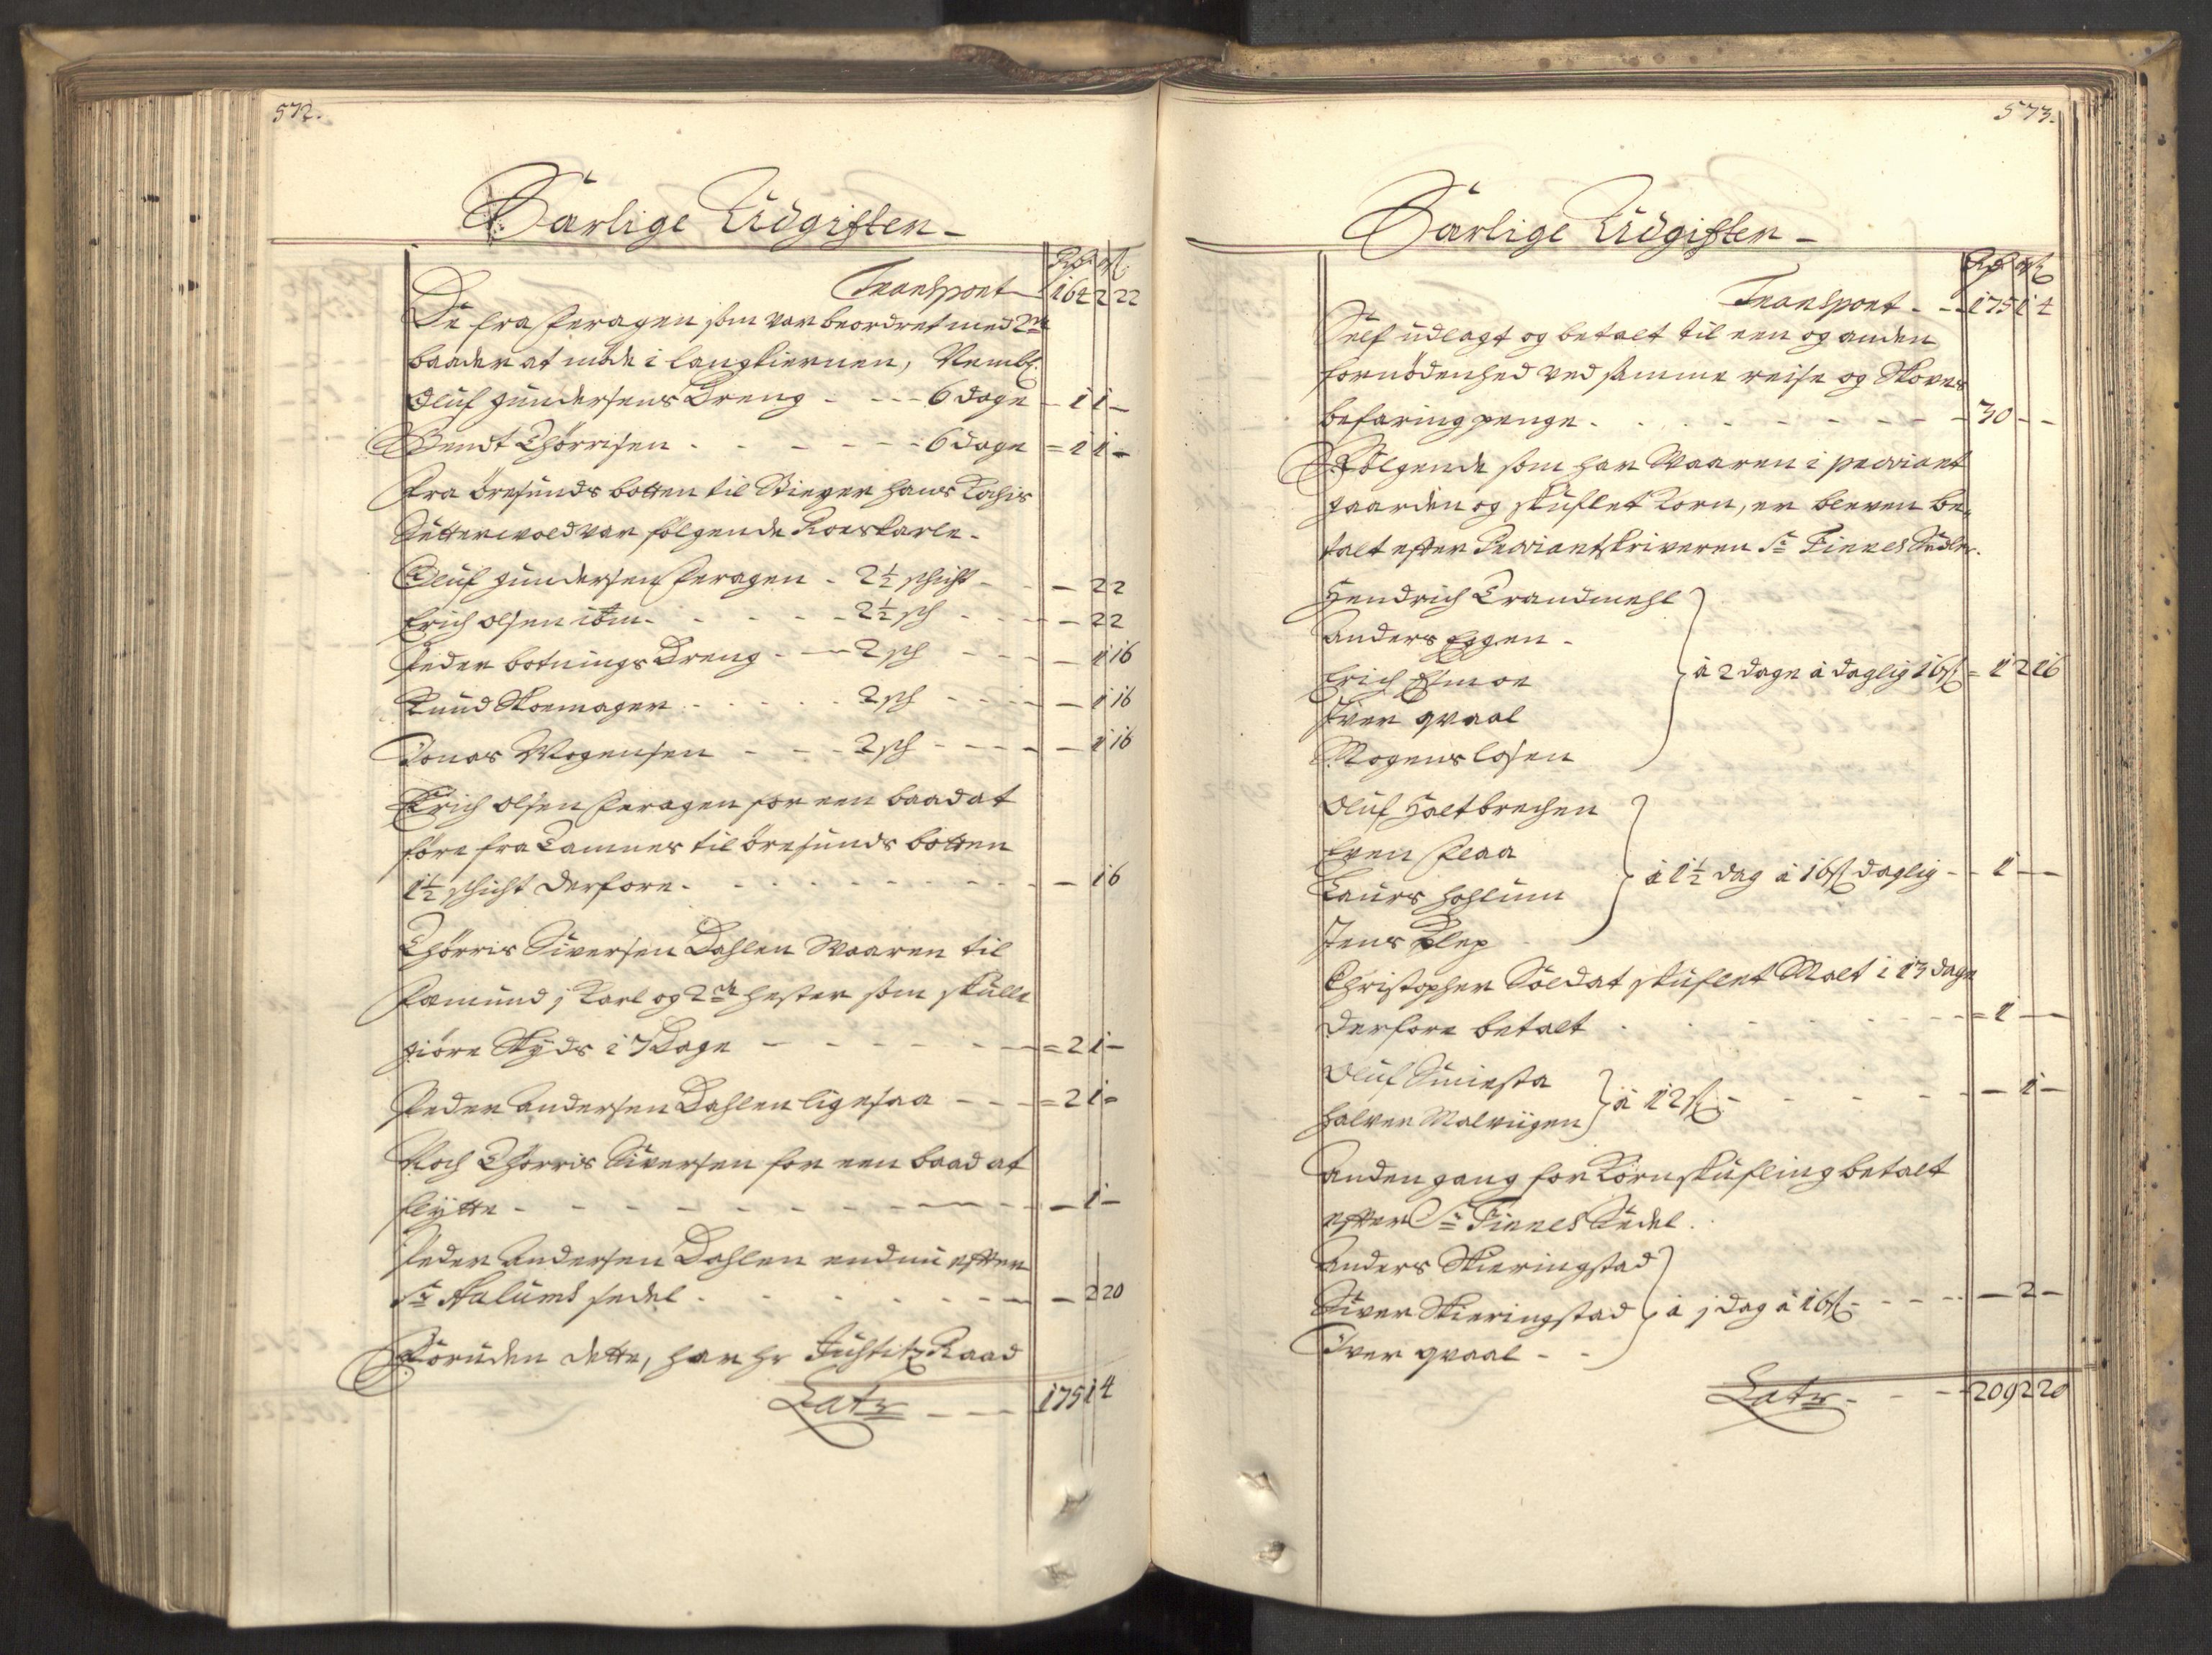 572.
Särlige Udgifter
Rdr ort ß
Transport 164 2 22
De fra Feragen som var beordret med 2de
baader at möde i Langtiernen, Nembl:
Oluf Gundersens Dreng - - - 6 dage - 1 1 -
Bendt Thörrisen - - - 6 dage = 1 1 -
Fra öresunds botten til Stieger Hans
Sätterwold var fölgende Roerskarle.
Oluf Gundersen Feragen - 2½ schicht - - 22
Erich Olsen item - - - 2½ sch - - - 22
Peder botnings Dreng - - 2 sch - - - 1 16
Knud Skoemager - - - 2 sch - - - 1 16
Jonas Mogensen - - - 2 sch - - - 1 16
Erich Olsen Feragen for een baad at
före fra Tamnes til öresunds botten
1½ schicht derfore - - - - 16
Thörris Siversen Dahlen Waaren til
Fæmund j Karl og 2de hester som skulle
giöre Skyds i 7 Dage - - - = 2 1 -
Peder Andersen Dahlen ligesaa - - - = 2 1 -
Noch Thörris Siversen for een baad at
flÿtte - - - - - 1 -
Peder Andersen Dahlen endnu efter
Sr Aalums sedel - - - - 2 20
Foruden dette, har Hr Justitz Raad
Latr - - 175 1 4
573.
Särlige Udgifter
Rdr ort ß
Transport - - 175 1 4
Self udlagt og betalt til een og anden
fornödenhed ved samme reise og Skoves
befaring penge - - - - 30 - -
Fölgende som har Waaren i proviant
gaarden og skuflet Korn, er bleven be-
talt efter Proviantskriveren Sr Finnes Sedler.
Hendrich Trandmehl
Anders Eggen -
Erich Esmoe
Iver qvaal
Mogens losen
à 2 dage à daglig 16 ß = 1 2 16
Oluf Holtbrechen
Even Flaa
Laurs hohlum
Jens Klep
à 1½ dag à 16 ß daglig - - 1 - -
Christopher Soldat skuflet Malt i 13 dage
derfore betalt - - - - = 1 - -
Oluf
Halver Malviigen
à 12 ß - - - - - 1 -
Anden gang for Korn skufling betalt
efter Sr Finnes Sedel.
Anders Skieringstad
Siver Skieringstad
Iver qvaal - -
à j dag à 16 ß - - - - 2 -
Latr - - 209 2 20